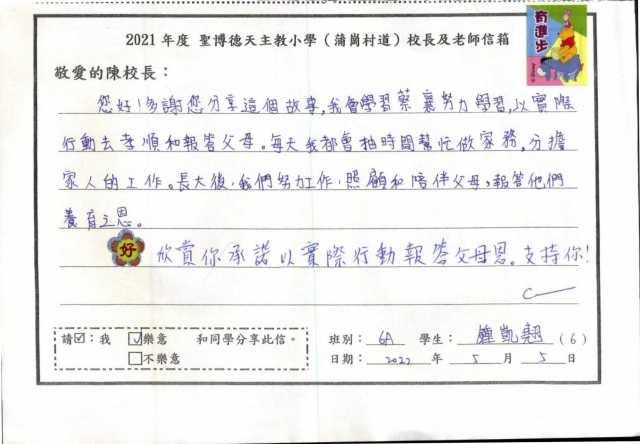 有進步
2021 年度 聖博德天主教小學（蒲崗村道）校長及老師信箱
敬愛的陳校長：
您好！多謝您分享這個故事，我會學習蔡襄努力學習，以實際
行動去孝順和報答父母。每天我都會抽時間幫忙做家務，分擔
家人的工作。長大後，我們努力工作，照顧和陪伴父母，報答他們
養育之恩。
好 欣賞你承諾以實際行動報答父母恩。支持你！
請☑：我 ☑樂意 和同學分享此信。
□不樂意
班別：6A 學生：鍾凱翹（6）
日期：2022 年 5 月 5 日